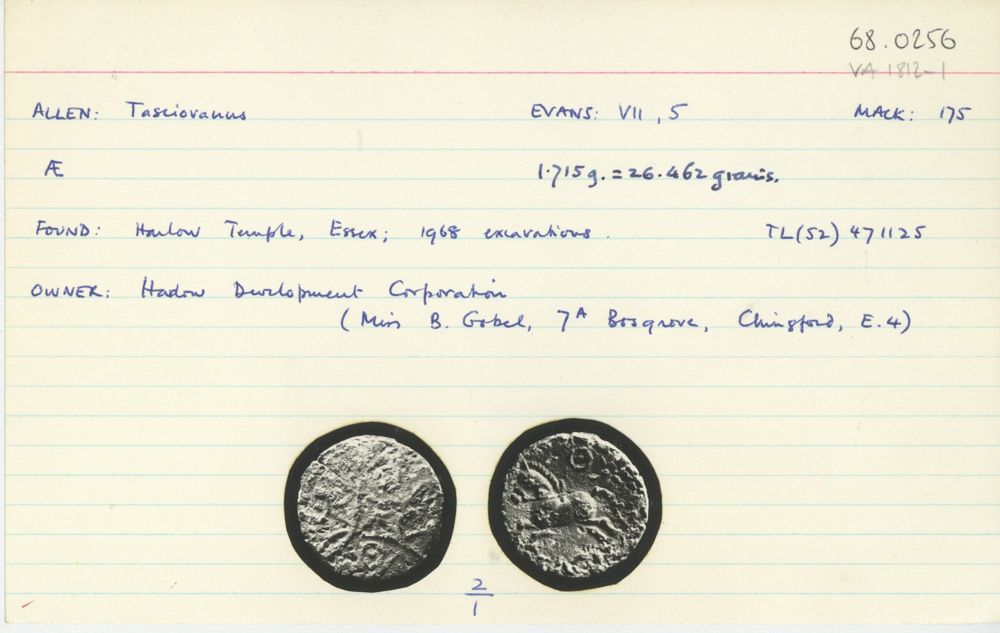 68.0256
VA 1812-1
ALLEN: Tasciovanus EVANS: VII, 5 MACK: 175
Æ 1.715g. = 26.462 grains.
FOUND: Harlow Temple, Essex; 1968 excavations. TL(52) 471125
OWNER: Harlow Development Corporation
(Miss B. Gobel, 7A Bosgrove, Chingford, E.4)
2
1